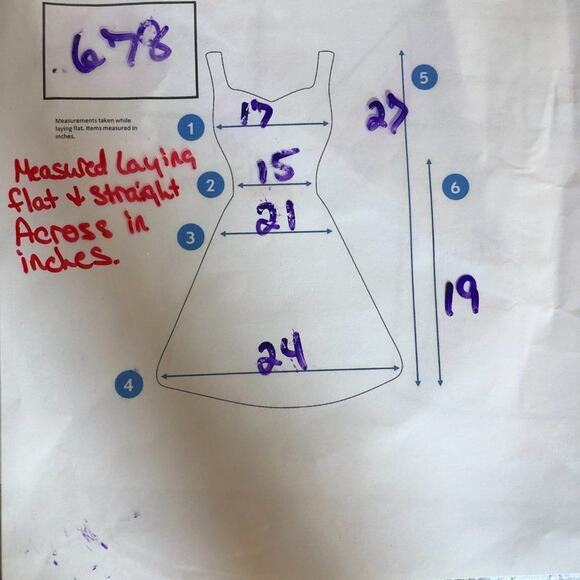 .678
Measurements taken while
laying flat. Items measured in
inches.
Measured laying
flat & straight
Across in
inches.
1
17
2
15
3
21
4
24
5
27
6
19